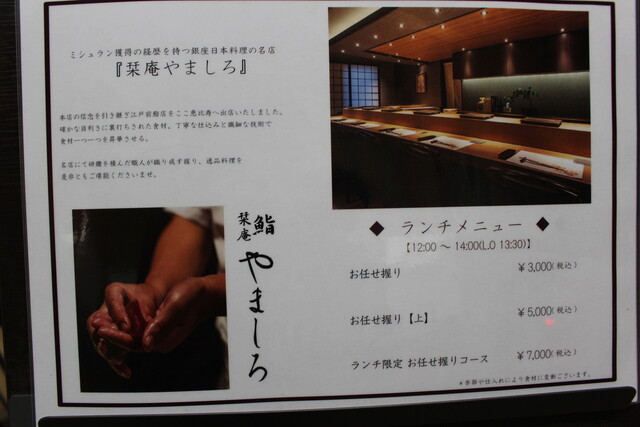 ミシュラン獲得の経歴を持つ銀座日本料理の名店
『栞庵やましろ』
本店の信念を引き継ぎ江戸前鮨店をここ恵比寿へ出店いたしました。
確かな目利きに裏打ちされた食材、丁寧な仕込みと繊細な技術で
食材一つ一つを昇華させる。
名店にて研鑽を積んだ職人が織り成す握り、逸品料理を
是非ともご堪能くださいませ。
鮨
栞庵
やましろ
◆ ランチメニュー ◆
【12:00 ～ 14:00(L.O 13:30)】
お任せ握り ￥3,000(税込)
お任せ握り【上】 ￥5,000(税込)
ランチ限定 お任せ握りコース ￥7,000(税込)
＊季節や仕入れにより食材に変動ございます。